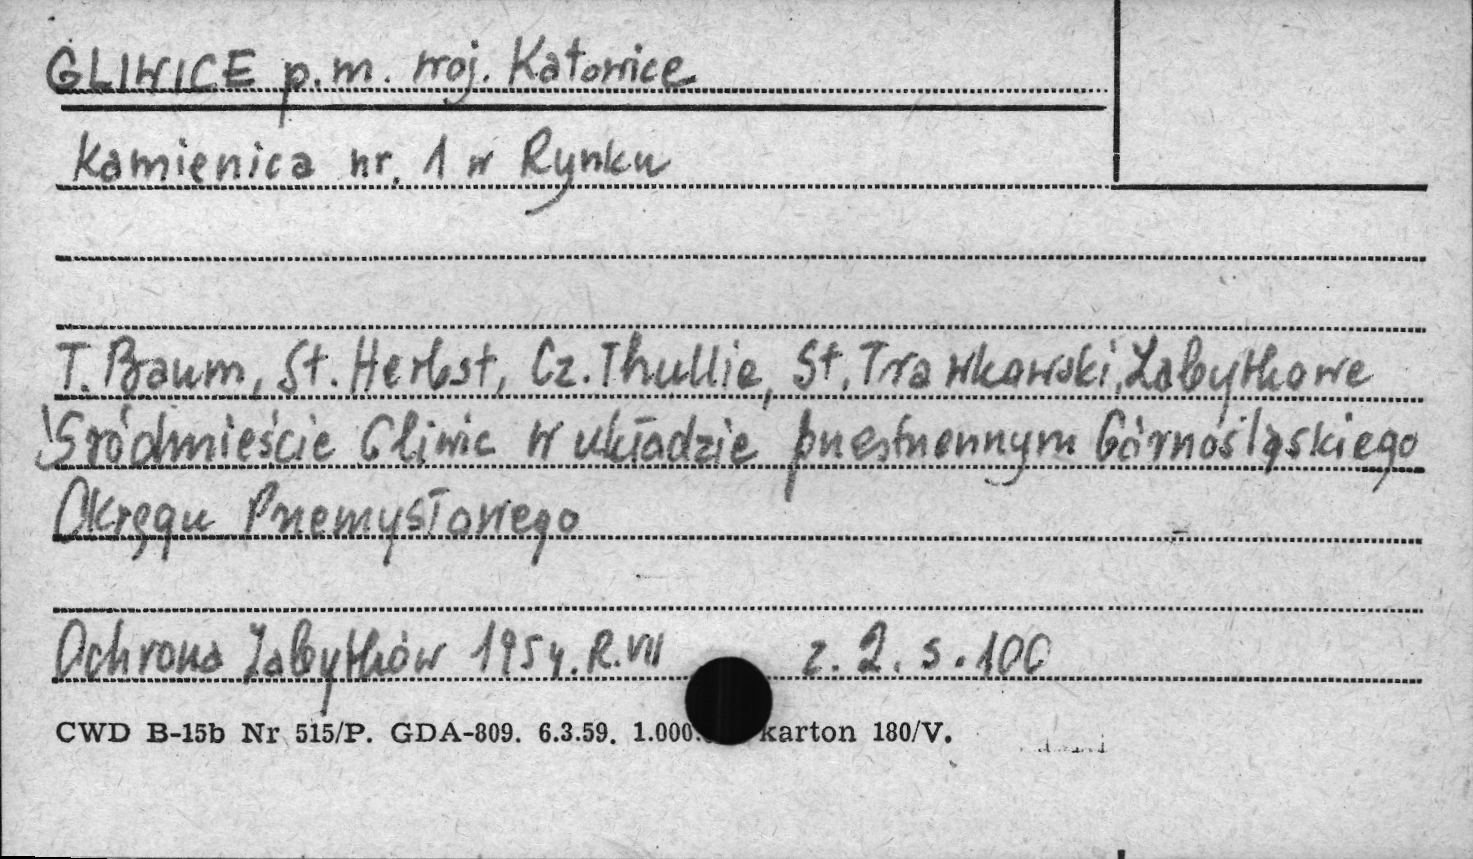 GLIWICE p.m. woj. Katowice
Kamienica nr. 1 w Rynku
T. Baum, St. Herbst, Cz. Thullie, St. Trawkowski, Zabytkowe
Śródmieście Gliwic w układzie przestrzennym Górnośląskiego
Okręgu Przemysłowego
Ochrona Zabytków 1954. R. VII z. 2. s. 100
CWD B-15b Nr 515/P. GDA-809. 6.3.59. 1.000. karton 180/V.